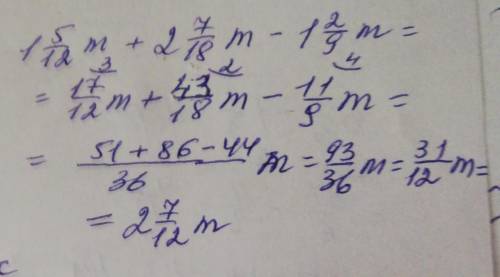 1 5/12 m + 2 7/18 m - 1 2/9 m =
= 17/12 3 m + 43/18 2 m - 11/9 4 m =
= 51 + 86 - 44/36 m = 93/36 m = 31/12 m =
= 2 7/12 m
c